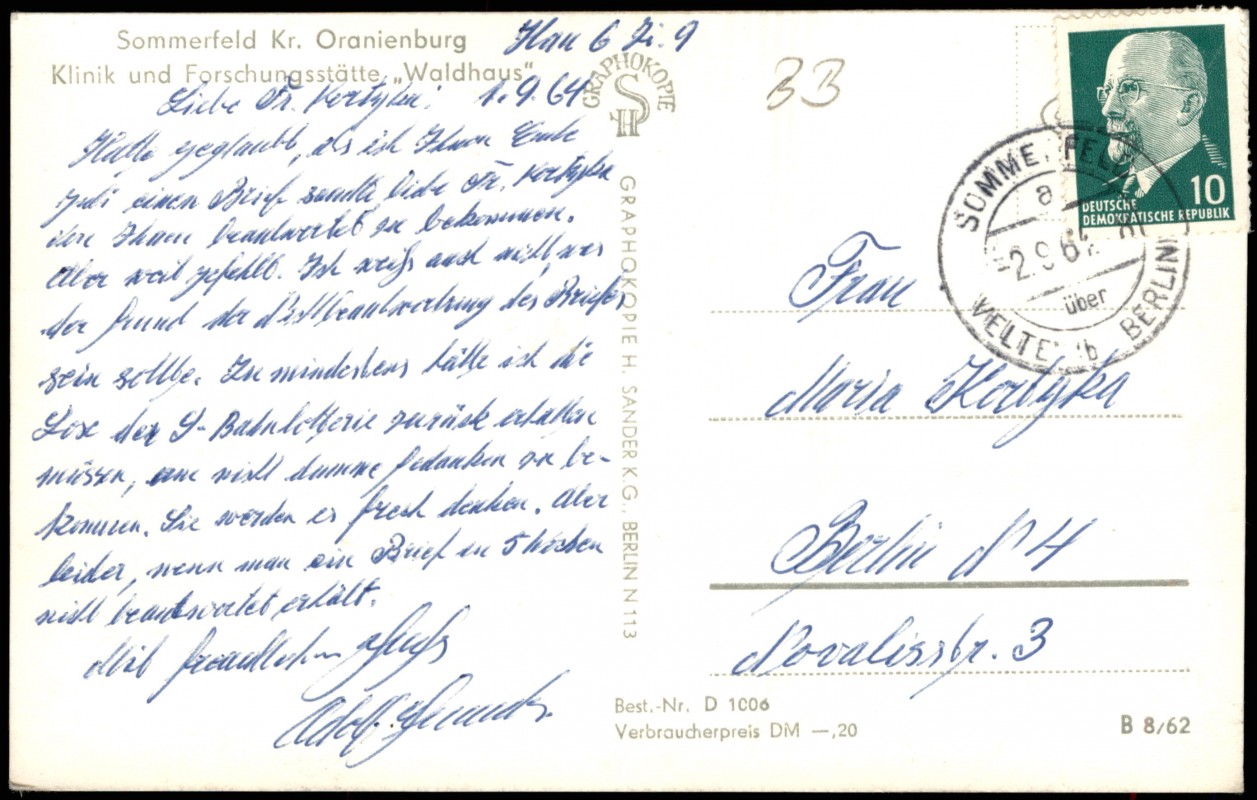 Sommerfeld Kr. Oranienburg
Klinik und Forschungsstätte „Waldhaus"
Hau 6 Zi. 9
1.9.64
Liebe Fr. Kortyka!
Hätte geglaubt, als ich Ihnen Ende
Juli einen Brief sandte liebe Fr. Kortyka
den Ihnen beantwortet zu bekommen.
Aber weit gefehlt. Ich weiß auch nicht, was
der Grund der Nichtbeantwortung des Briefes
sein sollte. Zu mindestens hätte ich die
Lose der S-Bahnlotterie zurück erhalten
müssen, um nicht dumme Gedanken zu be-
kommen. Sie werden es frech denken. Aber
leider, wenn man ein Brief in 5 Wochen
nicht beantwortet erhält.
Mit freundlichem Gruß
Adolf
GRAPHOKOPIE
SH
GRAPHOKOPIE H. SANDER K.G., BERLIN N 113
33
DEUTSCHE
DEMOKRATISCHE REPUBLIK
10
SOMMERFELD
a
-2.9.64
über
VELTEN b BERLIN
Frau
Maria Kortyka
Berlin N 4
Novalisstr. 3
Best.-Nr. D 1006
Verbraucherpreis DM —,20
B 8/62